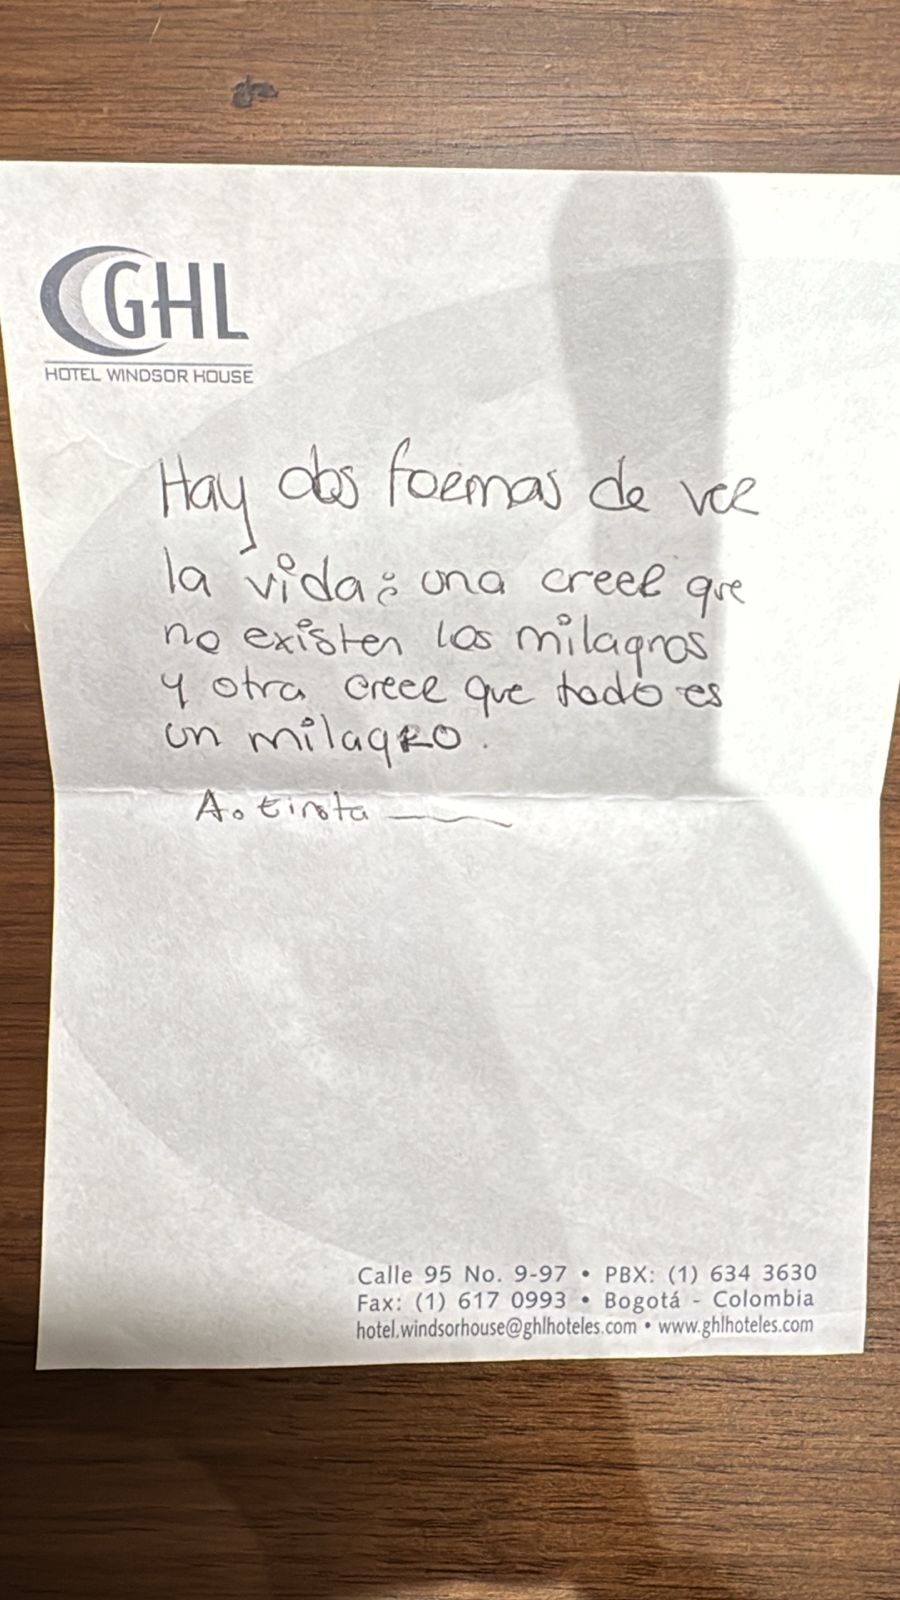 GHL
HOTEL WINDSOR HOUSE
Hay dos formas de ver
la vida: una creer que
no existen los milagros
y otra creer que todo es
un milagro.
A. Einsta
Calle 95 No. 9-97 • PBX: (1) 634 3630
Fax: (1) 617 0993 • Bogotá - Colombia
hotel.windsorhouse@ghlhoteles.com • www.ghlhoteles.com